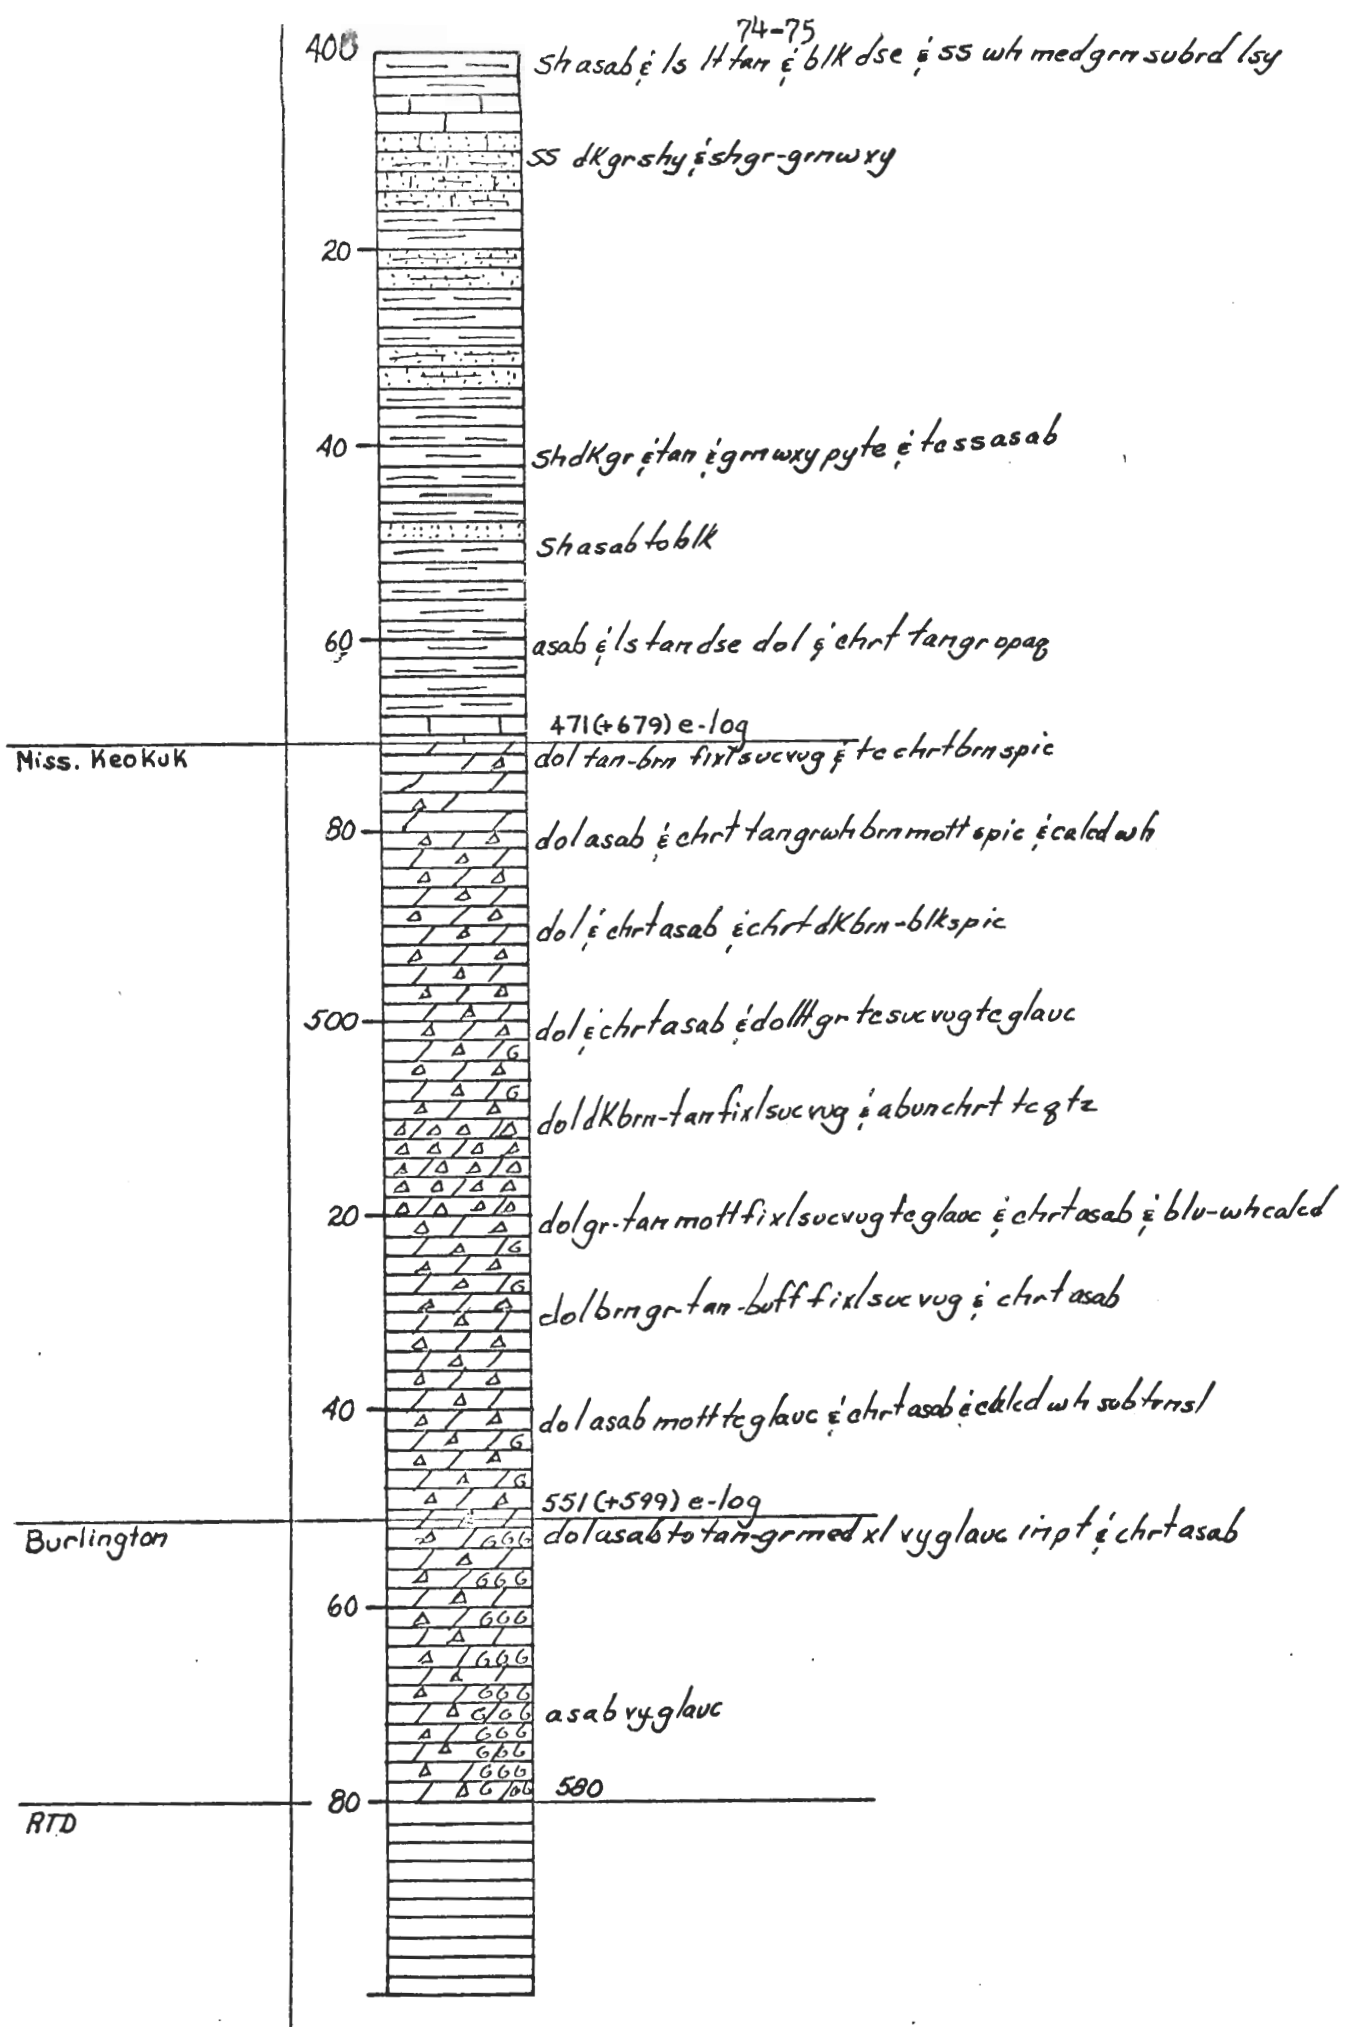 74-75
400 sh asab & ls lt tan & blk dse & ss wh med grn subrd lsy
ss dk gr shy & sh gr-grn wxy
20
40 sh dk gr & tan & grn wxy pyte & tc ss asab
sh asab to blk
60 asab & ls tan dse dol & chrt tan gr opaq
471 (+679) e-log
Miss. Keokuk dol tan-brn fixl suc vug & tc chrt brn spic
80 dol asab & chrt tan gr wh brn mott spic & calcd wh
dol & chrt asab & chrt dk brn-blk spic
500 dol & chrt asab & dol lt gr tc suc vug tc glauc
dol dk brn-tan fixl suc vug & abun chrt tc qtz
20 dol gr-tan mott fixl suc vug tc glauc & chrt asab & blu-wh calcd
dol brn gr-tan-buff fixl suc vug & chrt asab
40 dol asab mott tc glauc & chrt asab & calcd wh subtrnsl
551 (+599) e-log
Burlington dol asab to tan-gr med xl vy glauc in pt & chrt asab
60
asab vy glauc
80 580
RTD